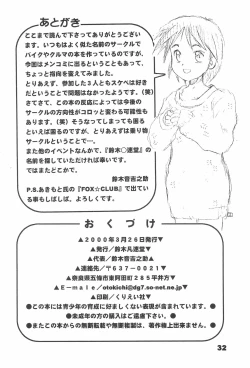 あとがき
ここまで読んで下さってありがとうござい
ます。いつもはよく似た名前のサークルで
バイクやクルマの本を作っているのですが、
今回はメンコミに出るということもあって、
ちょっと指向を変えてみました。
とりあえず、参加した3人ともスケベは好き
だということで問題はなかったようです。(笑)
さてさて、この本の反応によっては今後の
サークルの方向性がコロッと変わる可能性も
あります。(笑)そうなってしまっても困る
といえば困るのですが、とりあえずは乗り物
サークルということで…。
また他のイベントなんかで、『鈴木○連堂』の
名前を探していただければ幸いです。
ではまたどこかで。
鈴木音吉之助
P.S.あきもと氏の『FOX☆CLUB』で出てい
る車もしばしば。よろしくです。
おくづけ
▲2000年3月26日発行▼
▲代表/鈴木音吉之助▼
▲連絡先/〒637-0021▼
▲奈良県五條市東阿田町285平井方▼
▲E-male/otokichi@dg7.so-net.ne.jp▼
▲印刷/くりえい社▼
●この本には青少年の育成に好ましくない表現が含まれています。●
●未成年の方の購入はご遠慮下さい。●
●またこの本からの無断転載や無断複製は、著作権上出来ません。●
32